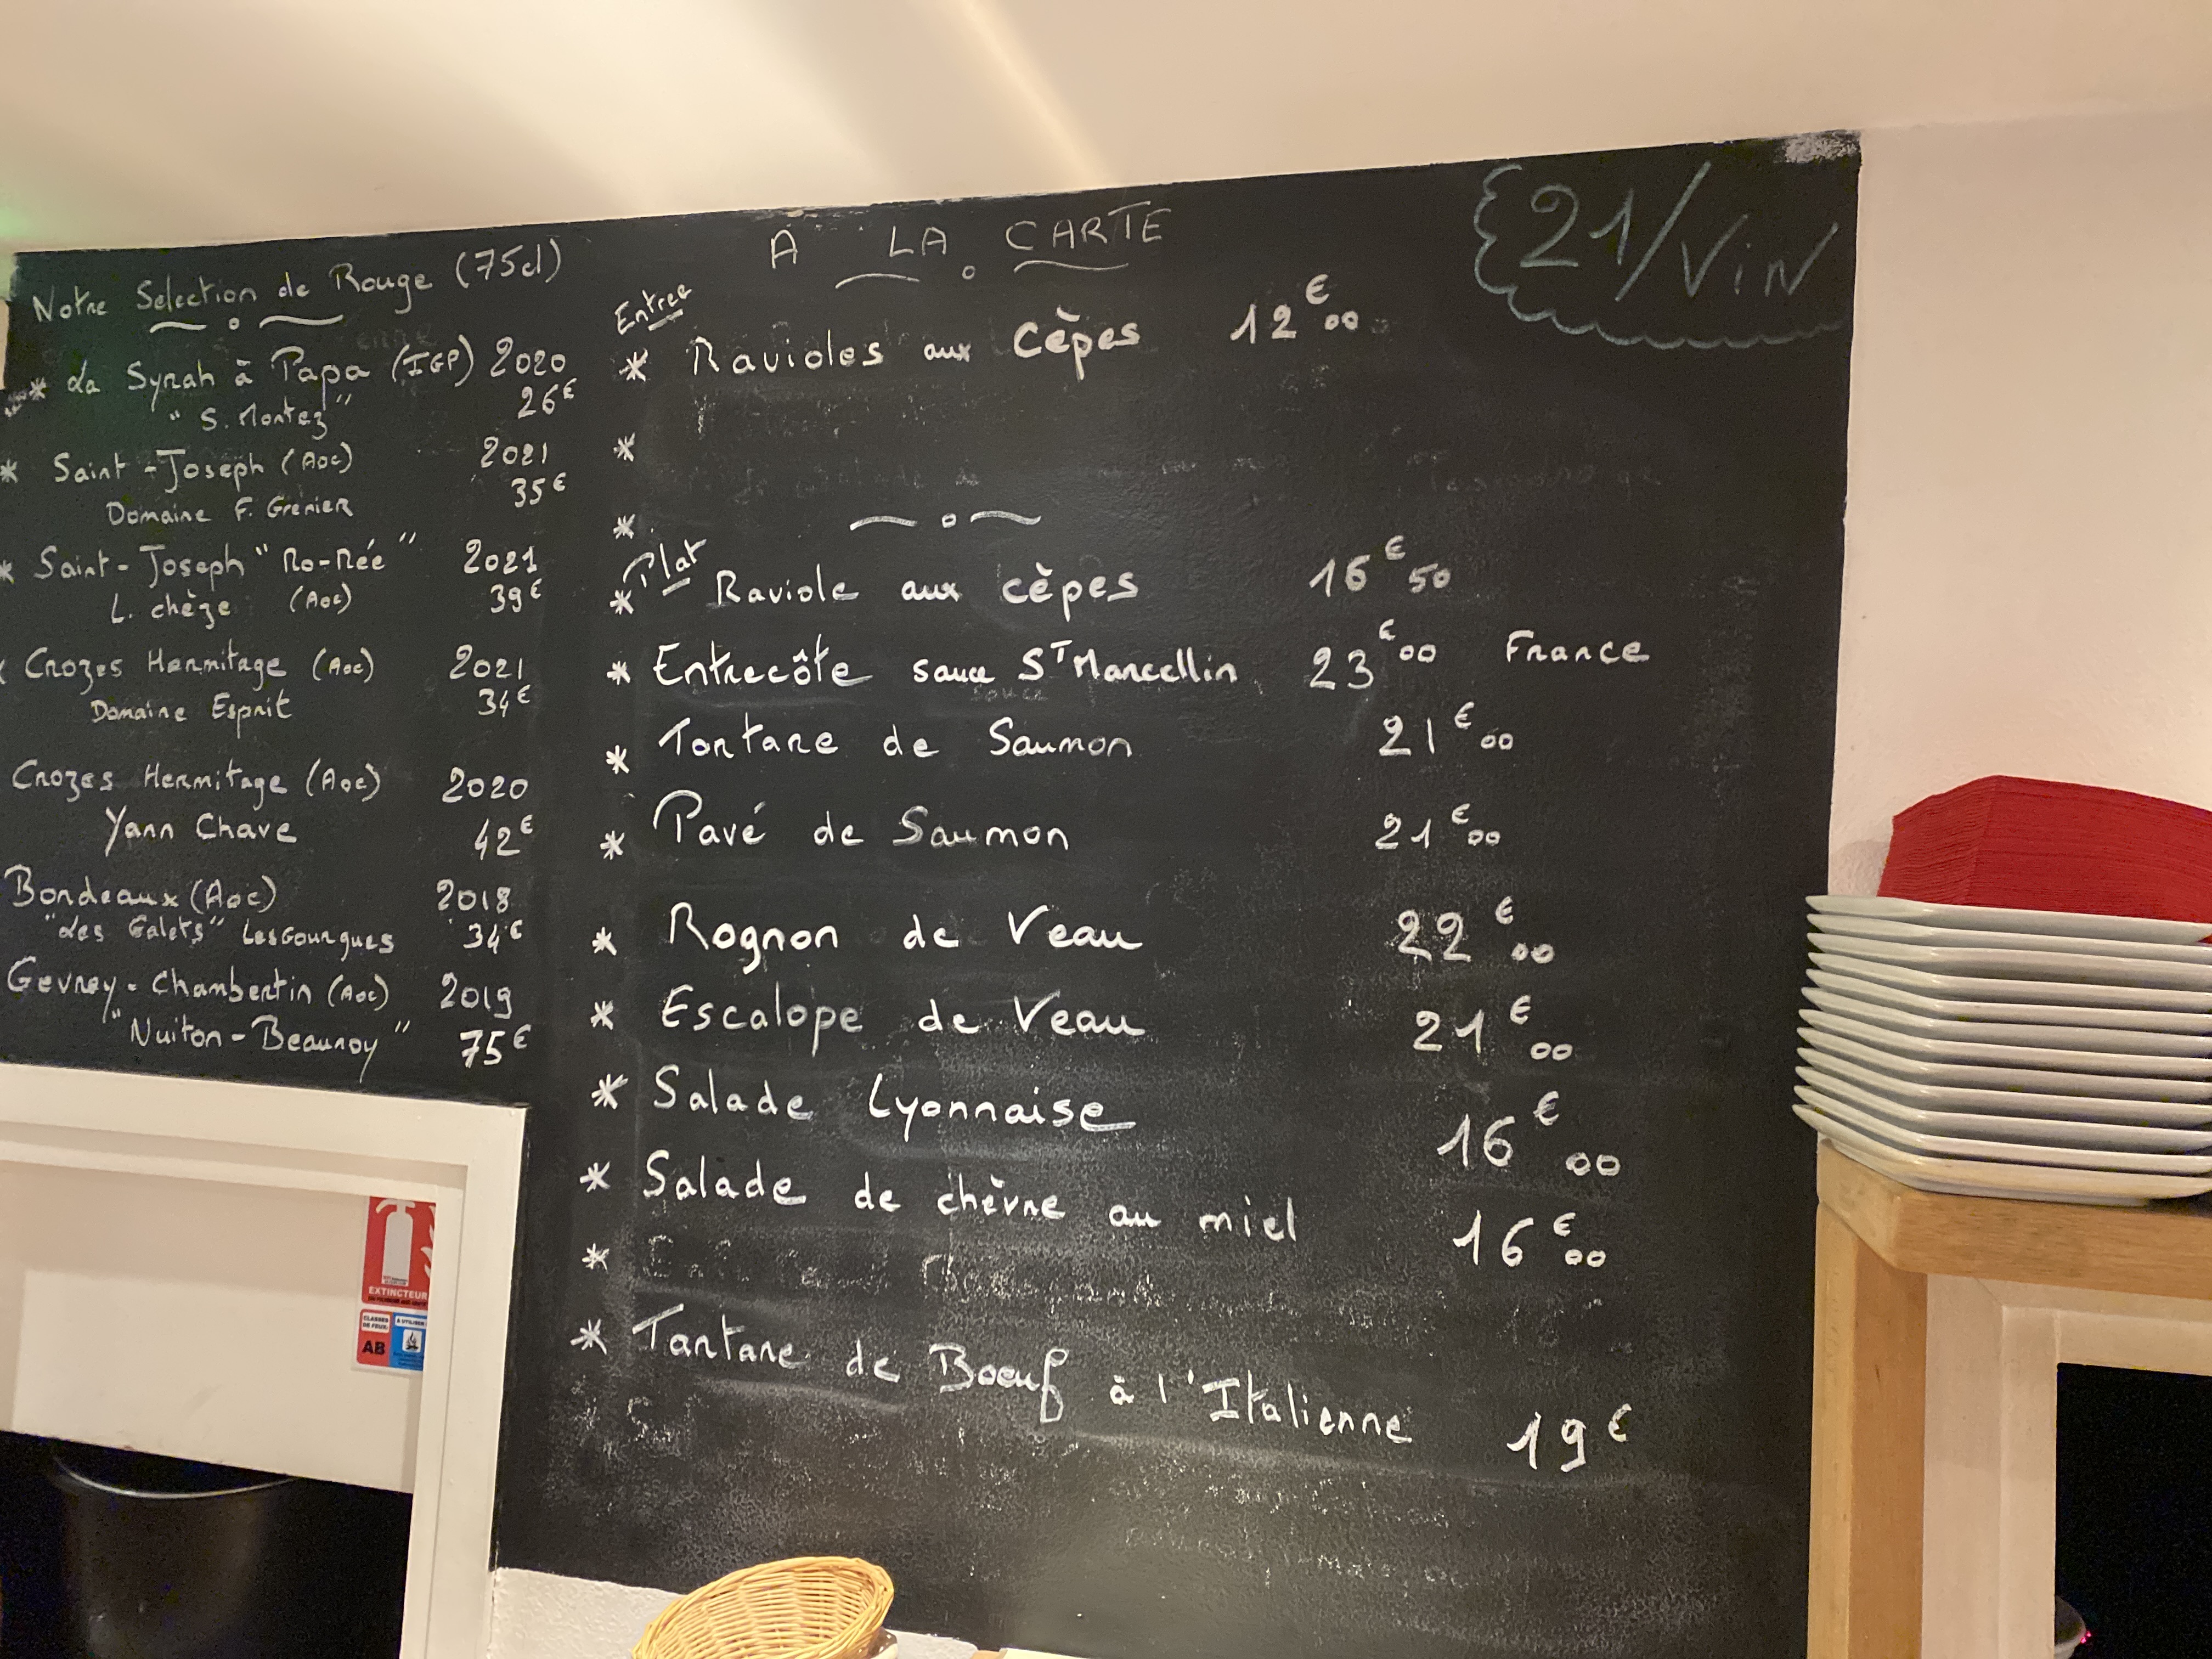 Notre Selection de Rouge (75cl)
* La Syrah à Papa (IGP) 2020
"S. Montez" 26€
* Saint-Joseph (Aoc) 2021
Domaine F. Grenier 35€
* Saint-Joseph "Ro-Rée" 2021
L. chèze (Aoc) 39€
* Crozes Hermitage (Aoc) 2021
Domaine Esprit 34€
Crozes Hermitage (Aoc) 2020
Yann Chave 42€
Bordeaux (Aoc) 2018
"Les Galets" Lesgourgues 34€
Gevrey-Chambertin (Aoc) 2019
"Nuiton-Beaunoy" 75€
A LA CARTE
21/ViN
Entree
* Ravioles aux Cèpes 12€00
*
*
Plat
* Raviole aux cèpes 16€50
* Entrecôte sauce St Marcellin 23€00 France
* Tartare de Saumon 21€00
* Pavé de Saumon 21€00
* Rognon de Veau 22€00
* Escalope de Veau 21€00
* Salade Lyonnaise 16€00
* Salade de chèvre au miel 16€00
*
* Tartare de Boeuf à l'Italienne 19€
EXTINCTEUR
CLASSES DE FEUX:
AB
A UTILISER